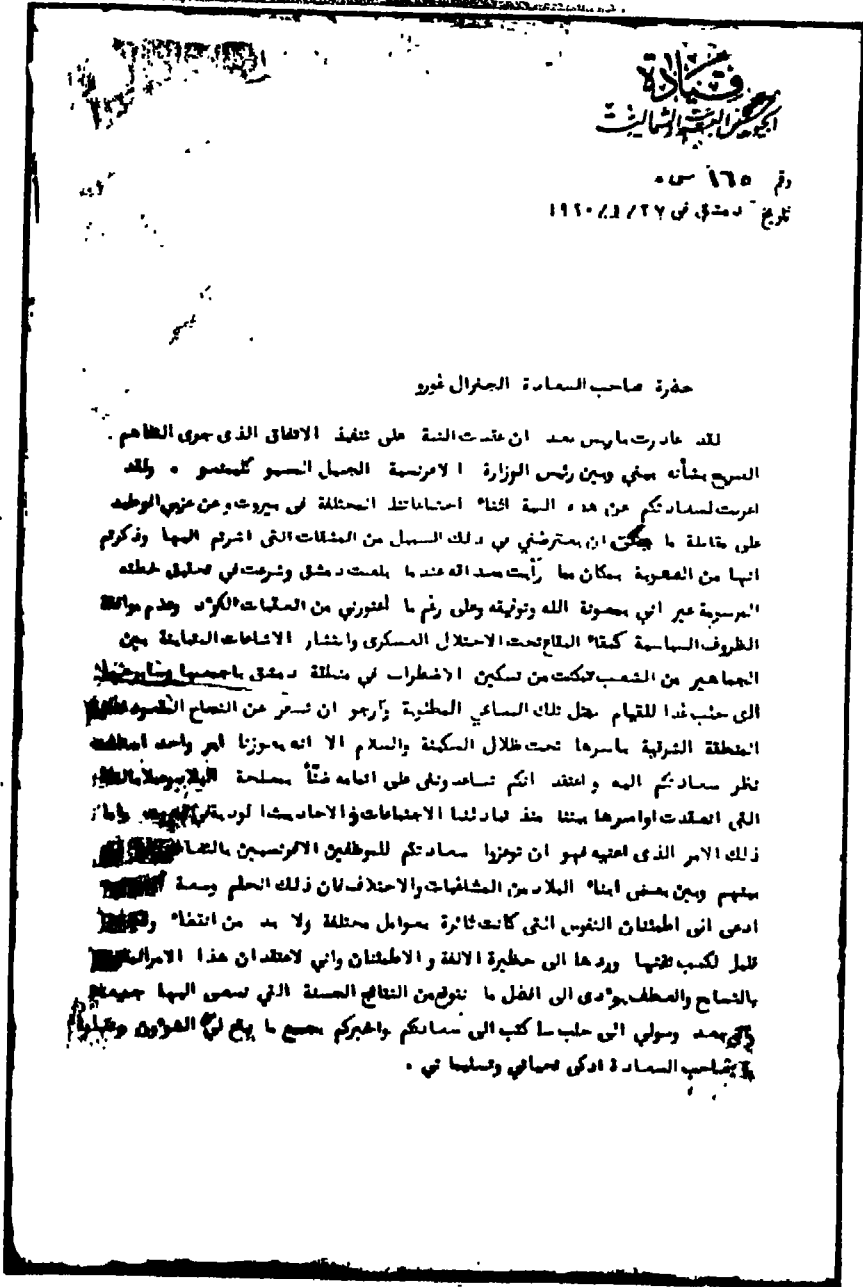 قيادة
الجيوش العربية الشمالية
رقم ١٦٥ س
تاريخ دمشق في ٢٧/١/١٩٢٠
حضرة صاحب السعادة الجنرال غورو
لقد غادرت باريس بعد ان عقدت النية على تنفيذ الاتفاق الذى جرى التفاهم
الصريح بشأنه بيني وبين رئيس الوزارة الافرنسية الجليل المسيو كليمنصو . ولقد
اعربت لسعادتكم عن هذه النية اثناء اجتماعاتنا المختلفة فى بيروت وعن عزمي الوطيد
على مقابلة ما ان يعترضني في ذلك السبيل من المشقات التى اشرتم اليها وذكرتم
انها من الصعوبة بمكان مما رأيت مصداقه عندما بلغت دمشق وشرعت في تحقيق خطته
المرسومة غير اني بمعونة الله وتوفيقه وعلى رغم ما أعتورني من العقبات الكؤد وعدم موافقة
الظروف السياسية كبقاء البقاع تحت الاحتلال العسكرى وانتشار الاشاعات المتباينة بين
الجماهير من الشعب تمكنت من تسكين الاضطراب في منطقة دمشق باجمعها
الى حلب غدا للقيام بمثل تلك المساعي المطلوبة وأرجو ان تسفر عن النجاح المقصود
المنطقة الشرقية باسرها تحت ظلال السكينة والسلام الا انه يعوزنا امر واحد
نظر سعادتكم اليه واعتقد انكم تساعدونني على اتمامه ضنّاً بمصلحة البلاد
التى انعقدت اواصرها بيننا منذ تبادلنا الاجتماعات والاحاديث
ذلك الامر الذى اعنيه فهو ان توعزوا سعادتكم للموظفين الافرنسيين
بينهم وبين بعض ابناء البلاد من المشاغبات والاختلاف فان ذلك الحلم وسعة
ادعى الى اطمئنان النفوس التى كانت ثائرة بعوامل مختلفة ولا بد من انقضاء
قليل لكسب ثقتها وردها الى حظيرة الالفة والاطمئنان واني لاعتقد ان هذا الامر
بالتسامح والعطف يؤدى الى افضل ما نتوقع من النتائج الحسنة التي نسعى اليها جميعا
بعد وصولي الى حلب ساكتب الى سعادتكم واخبركم بجميع ما يقع لي من الشؤون
يا صاحب السعادة ازكى تحياتي وتسليماتي .